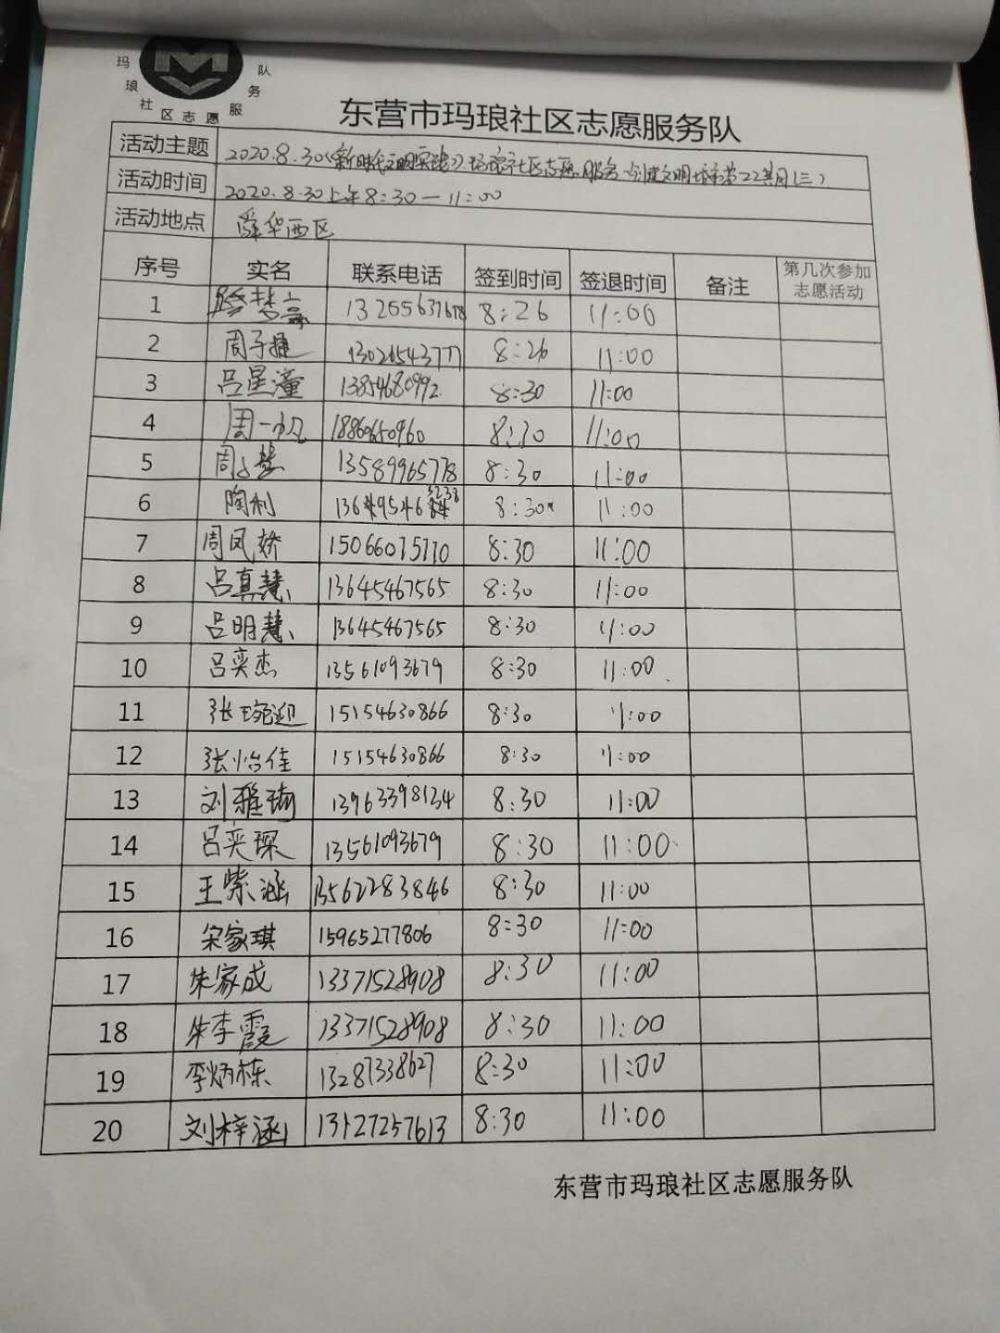 玛琅社区志愿服务队
东营市玛琅社区志愿服务队
活动主题 2020.8.30《新时代文明实践》玛琅社区志愿服务
活动时间 2020.8.30上午8:30—11:00
活动地点 舜华西区
序号 实名 联系电话 签到时间 签退时间 备注 第几次参加志愿活动
1 13255637678 8:26 11:00
2 周子捷 8:26 11:00
3 吕星潼 13854680992 8:30 11:00
4 周一帆 18860650960 8:30 11:00
5 13589965778 8:30 11:00
6 陶利 8:30 11:00
7 周凤娇 15066075770 8:30 11:00
8 吕真慧 13645467565 8:30 11:00
9 吕明慧 13645467565 8:30 11:00
10 吕奕杰 13561093679 8:30 11:00
11 张琬迎 15154630866 8:30 11:00
12 张怡佳 15154630866 8:30 11:00
13 刘雅瑜 13963398134 8:30 11:00
14 吕奕琛 13561093679 8:30 11:00
15 王紫涵 13562283846 8:30 11:00
16 宋家琪 15965277806 8:30 11:00
17 朱家成 13371528908 8:30 11:00
18 朱李霞 13371528908 8:30 11:00
19 李炳栋 13287338627 8:30 11:00
20 刘梓涵 13127257613 8:30 11:00
东营市玛琅社区志愿服务队